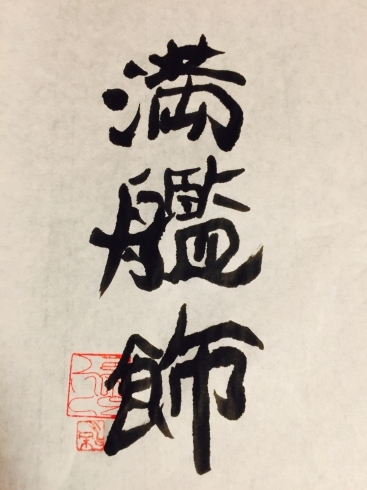 満艦飾